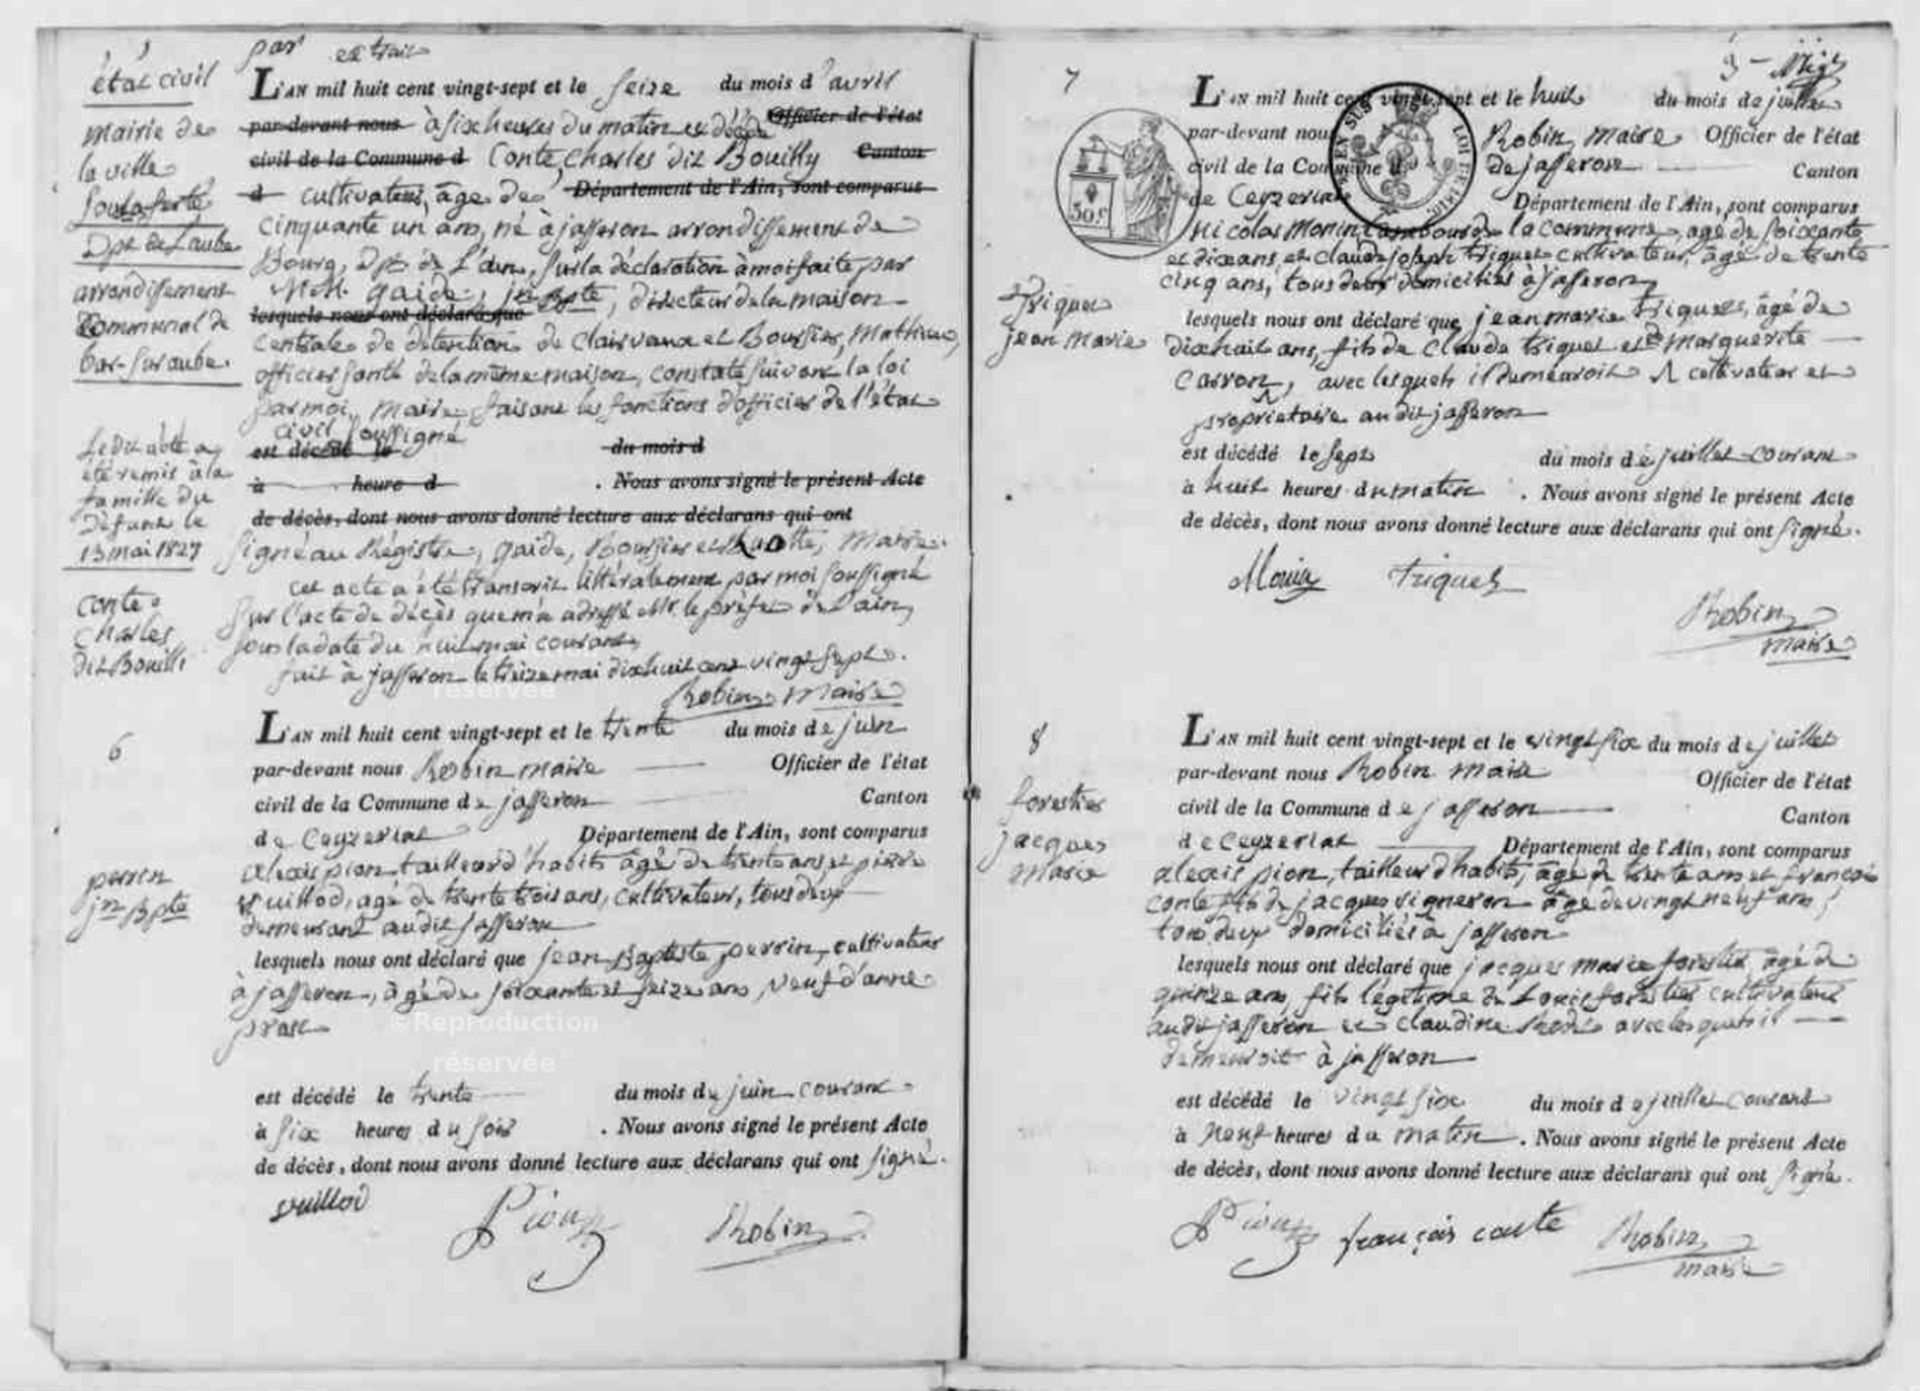 5
état civil
mairie de
la ville
sous la ferté
Dpt de Laube
arrondissement
Communal de
bar-sur aube.
Ledit acte a
été remis à la
famille du
Défunt le
13 mai 1827
conte
charles
dit Bouilli
par extrait
L'AN mil huit cent vingt-sept et le seize du mois d'avril
par-devant nous à six heures du matin est décédé Officier de l'état
civil de la Commune d Conte, Charles dit Bouilly Canton
d cultivateur, âgé de Département de l'Ain, sont comparus
cinquante un ans, né à jasseron arrondissement de
Bourg, dpt de L'ain, sur la déclaration à moi faite par
M.M. gaide, jn Bpte, directeur de la maison
lesquels nous ont déclaré que
centrale de détention de clairvaux et Boursier, Mathieu,
officier santé de la même maison, constaté suivant la loi
par moi, Maire faisant les fonctions d'officier de l'état
civil soussigné
est décédé le du mois d
à heure d . Nous avons signé le présent Acte
de décès, dont nous avons donné lecture aux déclarans qui ont
signé au Régistre, gaide, Boursier et Maire.
cet acte a été transcrit littéralement par moi soussigné
sur l'acte de décès que m'a adressé Mr. le préfet de l'ain,
sous la date du huit mai courant,
fait à jasseron le treize mai dixhuit cent vingt sept.
Robin, maire
6
perrin
jn Bpte
L'AN mil huit cent vingt-sept et le trente du mois de juin
par-devant nous Robin maire Officier de l'état
civil de la Commune de jasseron Canton
de Ceyzeriat Département de l'Ain, sont comparus
alexis pion tailleur d'habits âgé de trente ans, et pierre
vuillod, âgé de trente trois ans, cultivateur, tous deux
demeurant audit jasseron
lesquels nous ont déclaré que jean Baptiste perrin, cultivateur
à jasseron, âgé de soixante et seize ans, veuf d'anne
prast
©Reproduction
réservée
est décédé le trente du mois de juin courant
à six heures du soir . Nous avons signé le présent Acte
de décès, dont nous avons donné lecture aux déclarans qui ont signé.
vuillod Pion Robin
7
Triquet
jean Marie
L'AN mil huit cent vingt-sept et le huit du mois de juillet
par-devant nous Robin, maire Officier de l'état
civil de la Commune de jasseron Canton
de Ceyzeriat Département de l'Ain, sont comparus
Nicolas Monin, tambour de la commune, âgé de soixante
et dix ans, et claude joseph triquet cultivateur, âgé de trente
cinq ans, tous deux domiciliés à jasseron
lesquels nous ont déclaré que jean marie triquet, âgé de
dixhuit ans, fils de Claude triquet et de Marguerite
Carron, avec lesquels il demeuroit cultivateur et
propriétaire audit jasseron
est décédé le sept du mois de juillet courant
à huit heures du matin . Nous avons signé le présent Acte
de décès, dont nous avons donné lecture aux déclarans qui ont signé.
Monin Triquet
Robin
maire
50 c
8
forestier
jacques
Marie
L'AN mil huit cent vingt-sept et le vingt six du mois de juillet
par-devant nous Robin Maire Officier de l'état
civil de la Commune de jasseron Canton
de Ceyzeriat Département de l'Ain, sont comparus
alexis pion, tailleur d'habits, âgé de trente ans et françois
conte fils de jacques vigneron âgé de vingt neuf ans,
tous deux domiciliés à jasseron
lesquels nous ont déclaré que jacques marie forestier, âgé de
quinze ans, fils légitime de Louis forestier cultivateur
audit jasseron et claudine avec lesquels il
demeuroit à jasseron
est décédé le vingt six du mois de juillet courant
à neuf heures du matin . Nous avons signé le présent Acte
de décès, dont nous avons donné lecture aux déclarans qui ont signé.
Pion françois conte Robin
maire